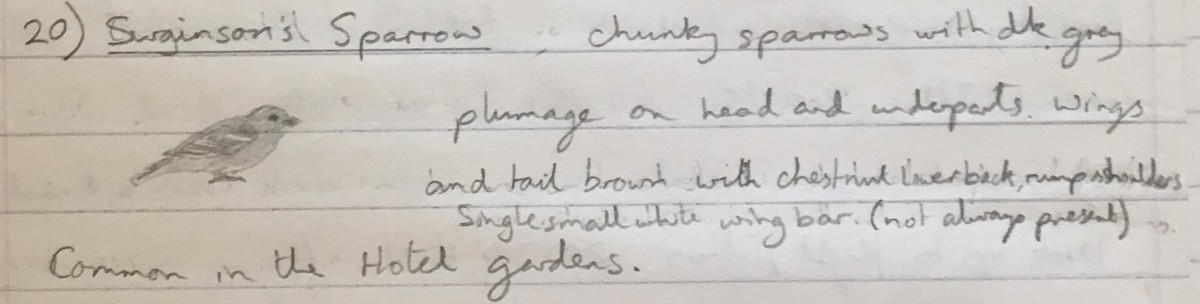 20) Swainson's Sparrow, chunky sparrows with dk grey
plumage on head and underparts. Wings
and tail brown with chestnut lower back, rump + shoulders
Single small white wing bar. (not always present)
Common in the Hotel gardens.